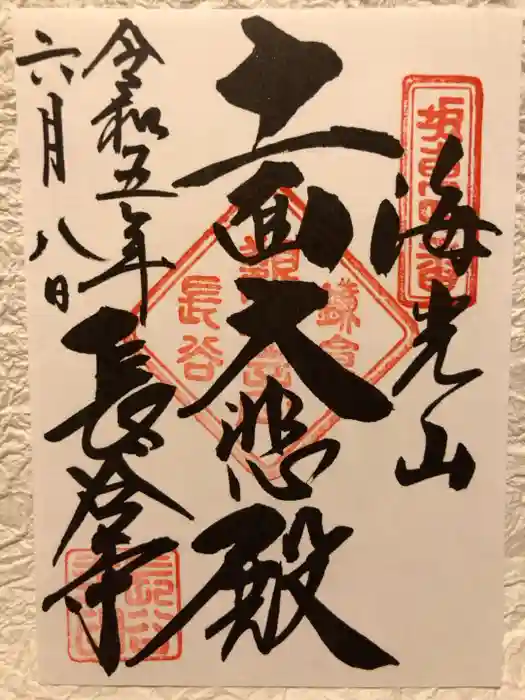 海光山
十一面大悲殿
令和五年
六月八日
長谷寺
坂東四番
鎌倉
長谷